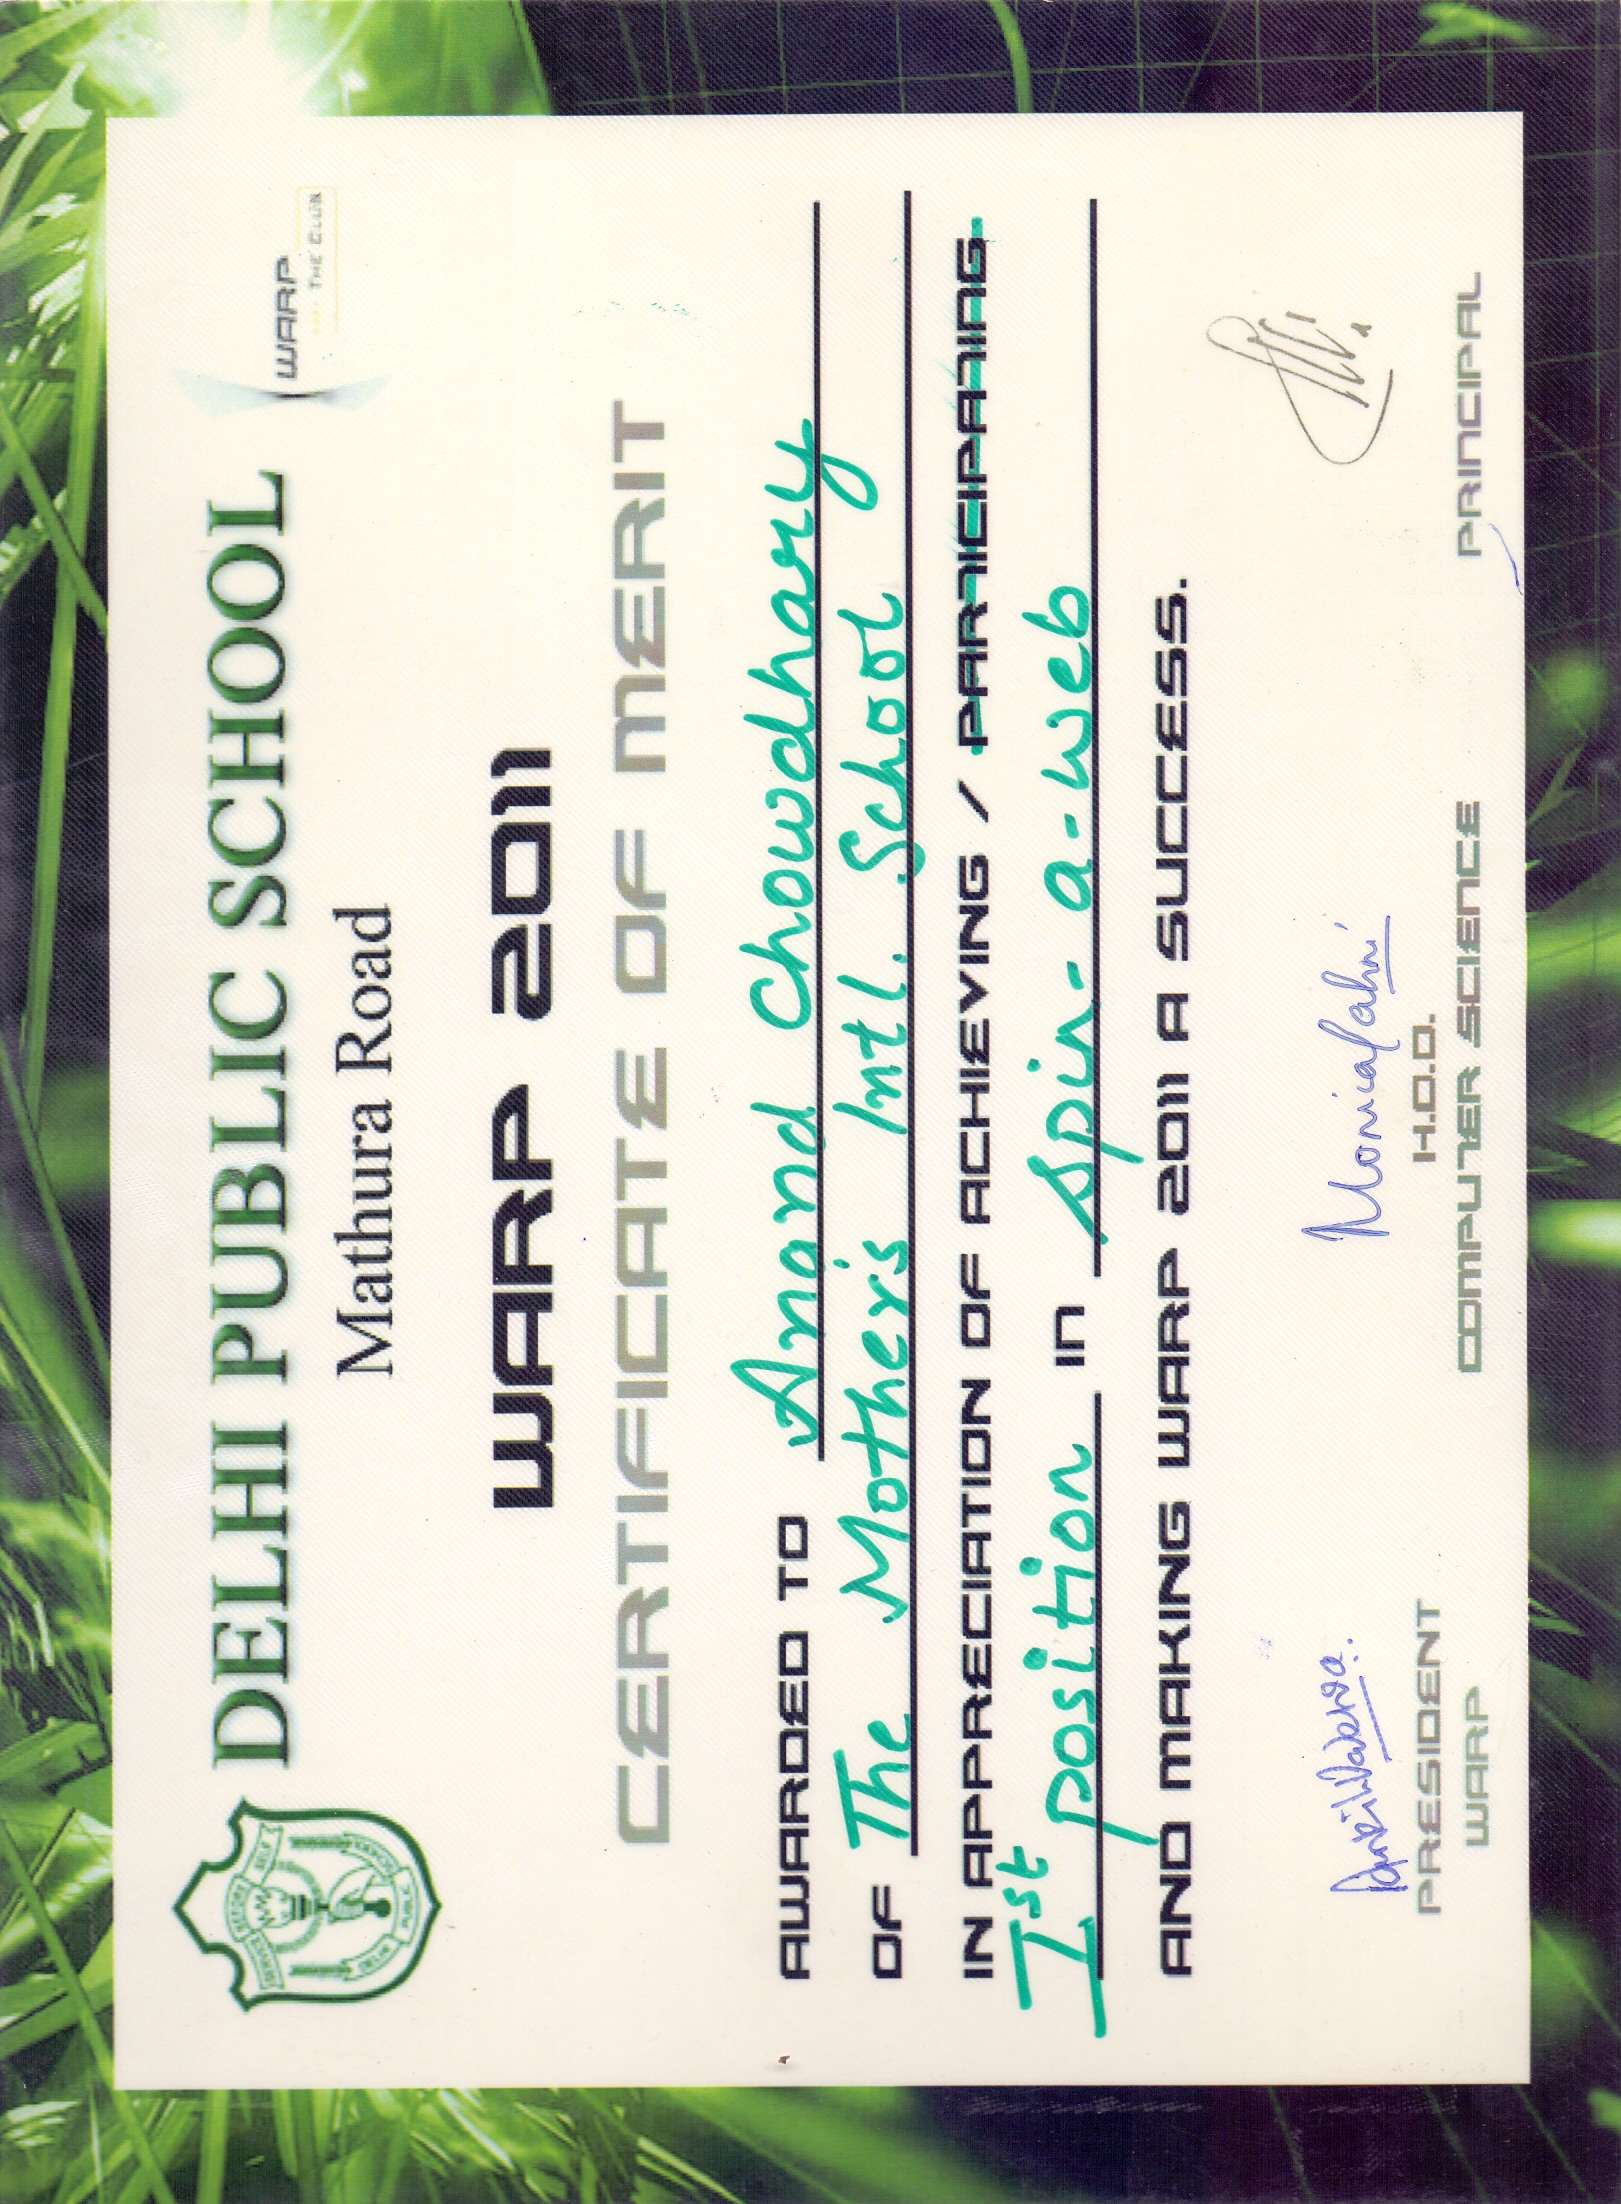 SERVICE BEFORE SELF
DELHI PUBLIC SCHOOL
DELHI PUBLIC SCHOOL
Mathura Road
WARP
THE CLUB
WARP 2011
CERTIFICATE OF MERIT
AWARDED TO Anand Chowdhary
OF The Mother's Intl. School
IN APPRECIATION OF ACHIEVING / PARTICIPATING
Ist position in Spin-a-web
AND MAKING WARP 2011 A SUCCESS.
Monica Sahni
PRESIDENT H.O.D.
WARP COMPUTER SCIENCE PRINCIPAL